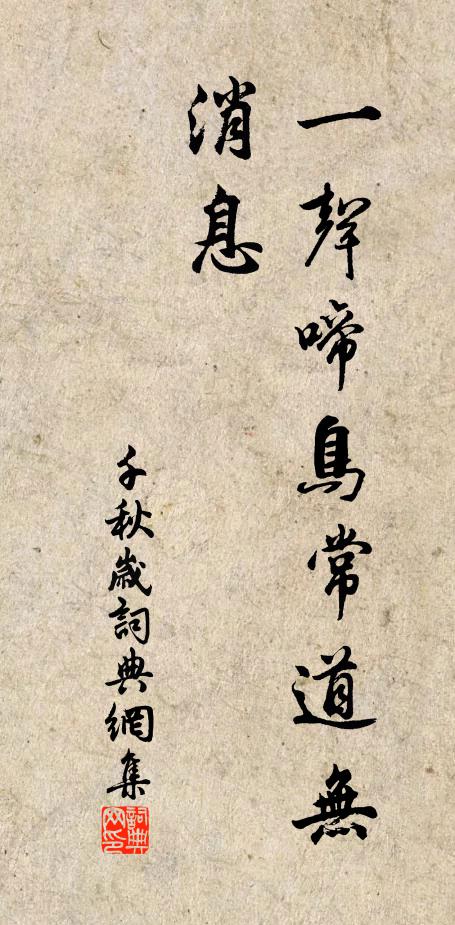 一聲啼鳥常道無
消息
千秋歲詞典網集
詞典
网印